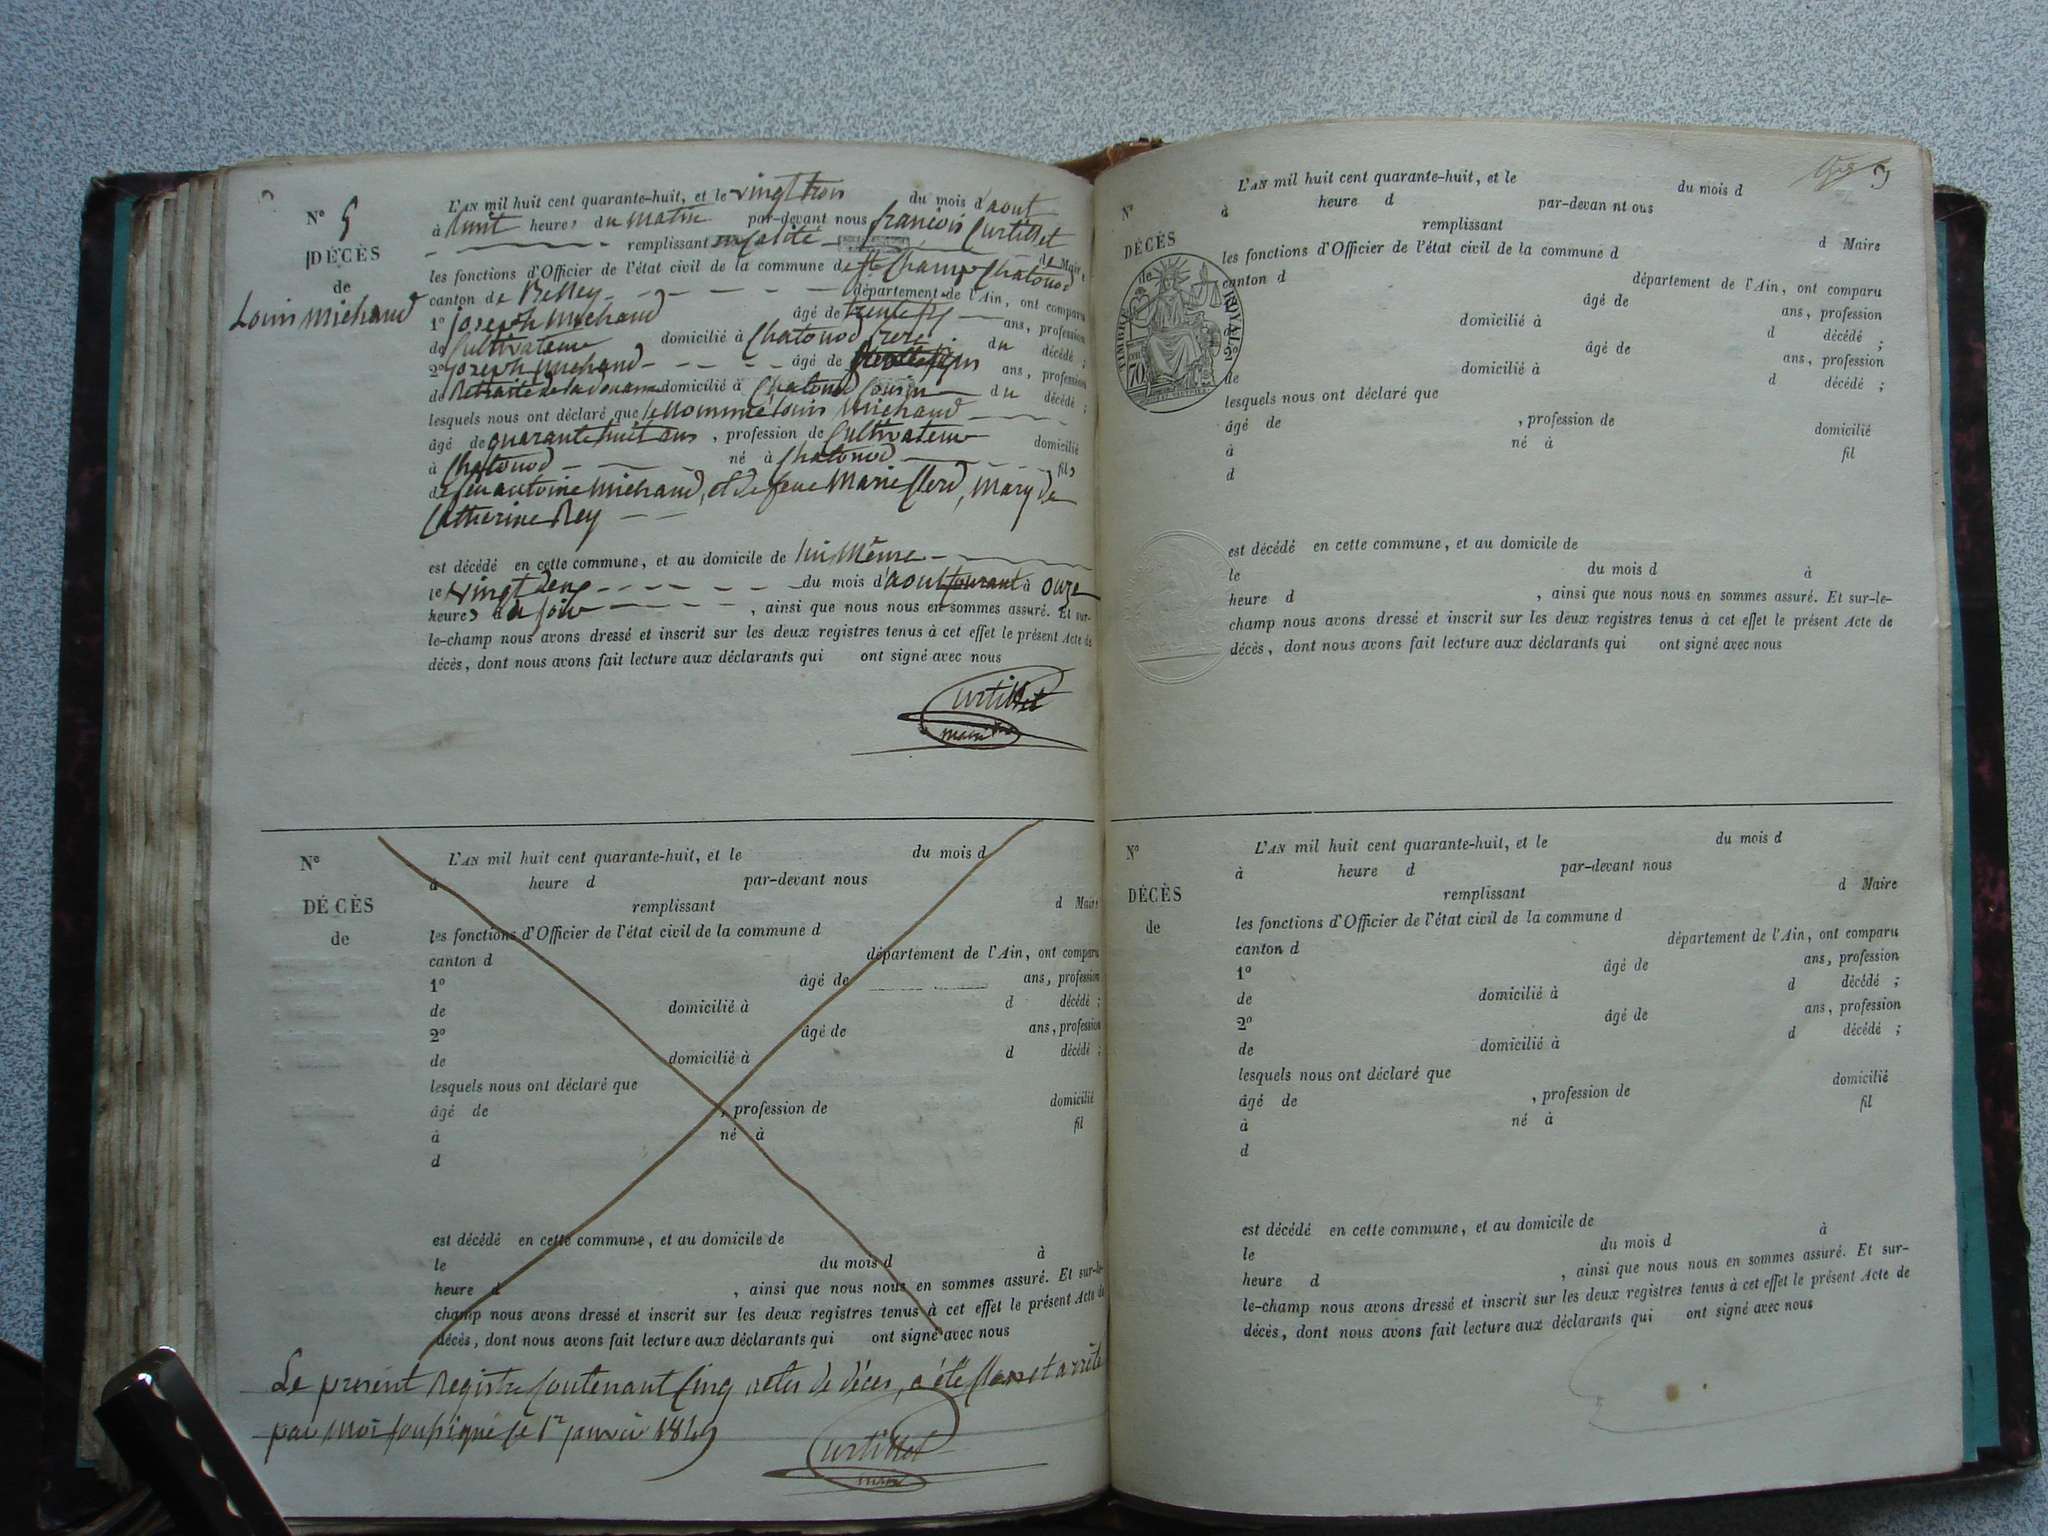 N° 5
DÉCÈS
de
Louis Michaud
L'AN mil huit cent quarante-huit, et le vingt trois du mois d'aout
à huit heures du matin par-devant nous francois Curtillet
remplissant en qualité de Maire
les fonctions d'Officier de l'état civil de la commune de St Champ Chatonod
canton de Belley département de l'Ain, ont comparu
1° joseph Michaud âgé de trente six ans, profession
de Cultivateur domicilié à Chatonod frere du décédé ;
2° joseph Michaud âgé de ans, profession
de Retraité de la douane domicilié à Chatonod Cousin du décédé ;
lesquels nous ont déclaré que le nommé Louis Michaud
âgé de quarante huit ans, profession de Cultivateur domicilié
à Chatonod né à Chatonod fils
de feu antoine Michaud, et de feue Marie Clerd, Mary de
Catherine Rey
est décédé en cette commune, et au domicile de lui Même
le vingt deux du mois d'aout courant à onze
heures du soir, ainsi que nous nous en sommes assuré. Et sur-
le-champ nous avons dressé et inscrit sur les deux registres tenus à cet effet le présent Acte de
décès, dont nous avons fait lecture aux déclarants qui ont signé avec nous
Curtillet
maire
N°
DÉCÈS
de
L'AN mil huit cent quarante-huit, et le du mois d
à heure d par-devant nous
remplissant d Maire
les fonctions d'Officier de l'état civil de la commune d
canton d département de l'Ain, ont comparu
1° âgé de ans, profession
de domicilié à d décédé ;
2° âgé de ans, profession
de domicilié à d décédé ;
lesquels nous ont déclaré que
âgé de , profession de domicilié
à né à fil
d
est décédé en cette commune, et au domicile de
le du mois d à
heure d , ainsi que nous nous en sommes assuré. Et sur-le-
champ nous avons dressé et inscrit sur les deux registres tenus à cet effet le présent Acte de
décès, dont nous avons fait lecture aux déclarants qui ont signé avec nous
Le present Registre Contenant Cinq actes de décès, a été Clos et arrêté
par moi soussigné le 1er janvier 1849
Curtillet
maire
N°
DÉCÈS
de
TIMBRE ROYAL
70
L'AN mil huit cent quarante-huit, et le du mois d
à heure d par-devan nt ous
remplissant d Maire
les fonctions d'Officier de l'état civil de la commune d
canton d département de l'Ain, ont comparu
âgé de ans, profession
domicilié à d décédé ;
2° âgé de ans, profession
de domicilié à d décédé ;
lesquels nous ont déclaré que
âgé de , profession de domicilié
à né à fil
d
est décédé en cette commune, et au domicile de
le du mois d à
heure d , ainsi que nous nous en sommes assuré. Et sur-le-
champ nous avons dressé et inscrit sur les deux registres tenus à cet effet le présent Acte de
décès, dont nous avons fait lecture aux déclarants qui ont signé avec nous
N°
DÉCÈS
de
L'AN mil huit cent quarante-huit, et le du mois d
à heure d par-devant nous
remplissant d Maire
les fonctions d'Officier de l'état civil de la commune d
canton d département de l'Ain, ont comparu
1° âgé de ans, profession
de domicilié à d décédé ;
2° âgé de ans, profession
de domicilié à d décédé ;
lesquels nous ont déclaré que
âgé de , profession de domicilié
à né à fil
d
est décédé en cette commune, et au domicile de
le du mois d à
heure d , ainsi que nous nous en sommes assuré. Et sur-
le-champ nous avons dressé et inscrit sur les deux registres tenus à cet effet le présent Acte de
décès, dont nous avons fait lecture aux déclarants qui ont signé avec nous